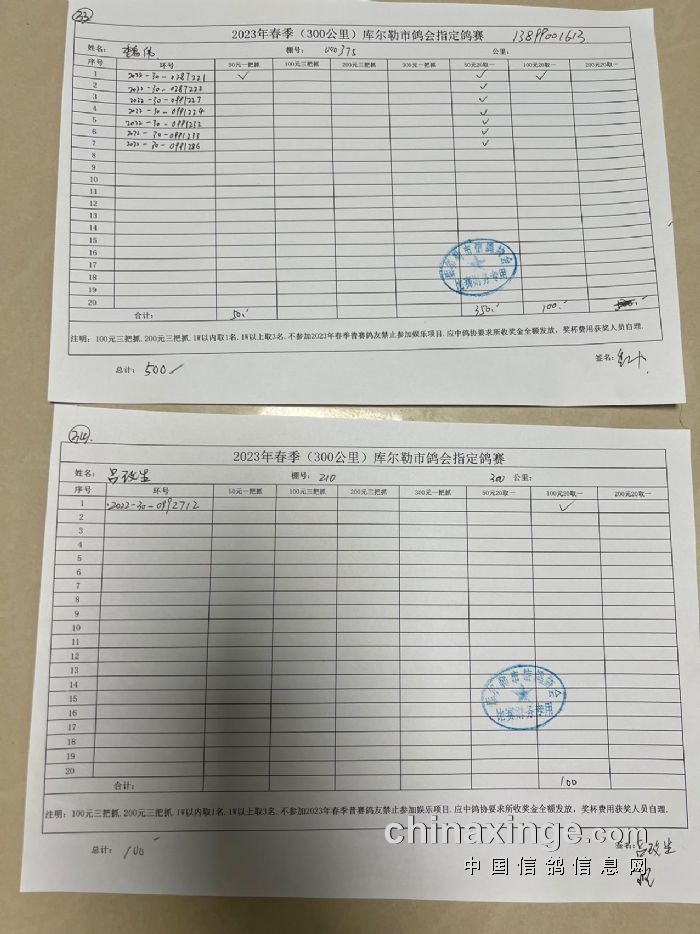 33
2023年春季（300公里）库尔勒市鸽会指定鸽赛 13899001613
姓名： 棚号： 375 公里：
序号 环号 50元一把抓 100元三把抓 200元三把抓 300元一把抓 50元20取一 100元20取一 200元20取一
1 2022-30-0287221 ✓ ✓ ✓
2 2022-30-0287222 ✓
3 2022-30-0991227 ✓
4 2022-30-0991224 ✓
5 2022-30-0991252 ✓
6 2022-30-0991233 ✓
7 2022-30-0991286 ✓
8
9
10
11
12
13
14
15
16
17
18
19
20
合计： 50 350 100
库尔勒市信鸽协会
比赛财务专用
注明：100元三把抓.200元三把抓.1W以内取1名.1W以上取3名.不参加2023年春季普赛鸽友禁止参加娱乐项目.应中鸽协要求所收奖金全额发放，奖杯费用获奖人员自理.
总计： 500 签名：
2023年春季（300公里）库尔勒市鸽会指定鸽赛
姓名： 吕改生 棚号： 210 300 公里：
序号 环号 50元一把抓 100元三把抓 200元三把抓 300元一把抓 50元20取一 100元20取一 200元20取一
1 2022-30-0992712 ✓
2
3
4
5
6
7
8
9
10
11
12
13
14
15
16
17
18
19
20
合计： 100
库尔勒市信鸽协会
比赛财务专用
注明：100元三把抓.200元三把抓.1W以内取1名.1W以上取3名.不参加2023年春季普赛鸽友禁止参加娱乐项目.应中鸽协要求所收奖金全额发放，奖杯费用获奖人员自理.
总计： 100 签名： 吕改生
chinaxinge.com
中国信鸽信息网